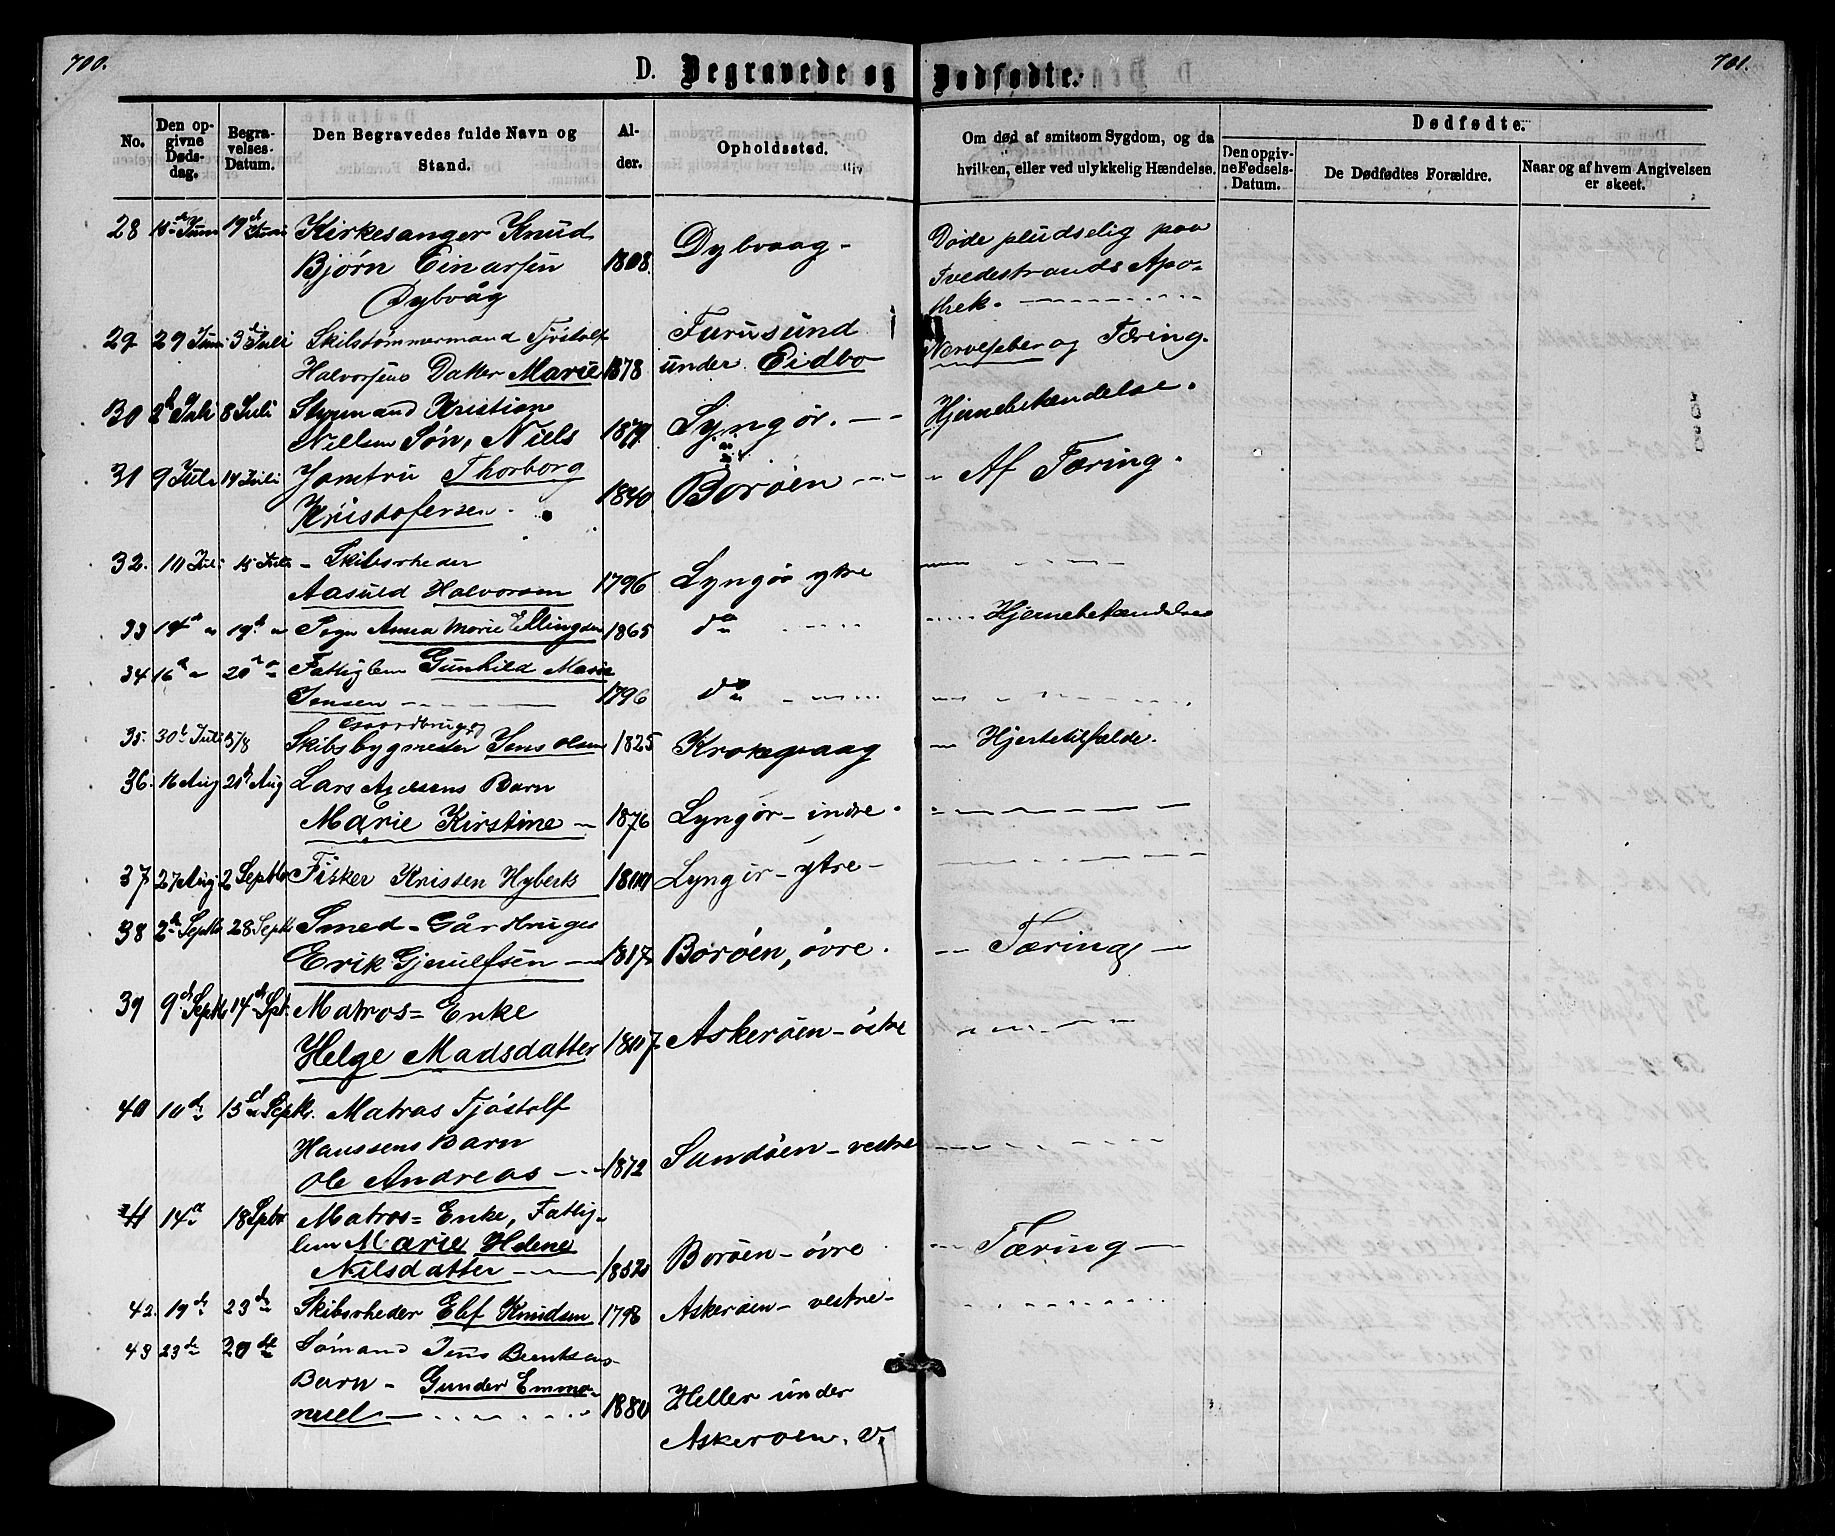 700.
701.
D. Begravede og Dødfødte.
No.
Den opgivne Dødsdag.
Begravelses-Datum.
Den Begravedes fulde Navn og Stand.
Alder.
Opholdssted.
Om død af smitsom Sygdom, og da hvilken, eller ved ulykkelig Hændelse.
Dødfødte.
Den opgivne Fødsels-Datum.
De Dødfødtes Forældre.
Naar og af hvem Angivelsen er skeet.
28 Juni 19d Juni Kirkesanger Knud
Bjørn Einarsen 1808. Dybvaag - Døde pludselig paa
Dybvåg Tvedestrands Apo-
thek.
29 29 Juni 3d Juli Skibstømmermand Tjöstolf Furusund
Halvorsens Datter Marie 1878 under Eidbo Nervefeber og Tæring.
30 2d Juli 8 Juli Styrmand Kristian
Nielsens Søn, Niels 1879 Lyngør. - - Hjernebetændelse.
31 9 Juli 14 Juli Jomfru Thorborg
Kristofersen. 1840 Borøen - - - " Af Tæring.
32. 10 Juli 15 Juli - Skibsrheder
Aasuld Halvorsen 1796 Lyngör ytre
33 14d " 19d " Pige Anna Marie Ellingsen 1865 do Hjernebetændelse
34 16d " 20d " Fattiglem Gunhild Marie
Jensen 1796 do
35. 30d Juli 5/8 Gaardbruger og
Skibsbygmester Jens Olsen 1825 Krokevaag - Hjertetilfælde.
36. 16 Aug 21d Aug Lars Barn
Marie Kirstine - 1876 Lyngör - indre.
37 27 Aug. 2 Septbr Fisker Knissen Hyberts Lyngör - ytre -
38 2d Septb 28 Septb Smed - Gårdbruger
Erik Gjerulfsen - 1817 Borøen, övre. - Tæring -
39 9d Septb 14d Spt. Matros = Enke
Helge Madsdatter Askerøen - östre
40 10d 15d Septb. Matros Tjöstolf
Hanssens Barn
Ole Andreas 1872 Sandøen - vestre
41 14d 18 Septbr Matros = Enke, Fattig-
lem Marie Helene
Nilsdatter Borøen - övre - Tæring -
42. 19d 23d Skibsrheder Elef Knudsen Askerøen - vestre -
43 23d Sømand Jens
Barn - Gunder Emma-
nuel 1880 Heller under
Askerøen. v.